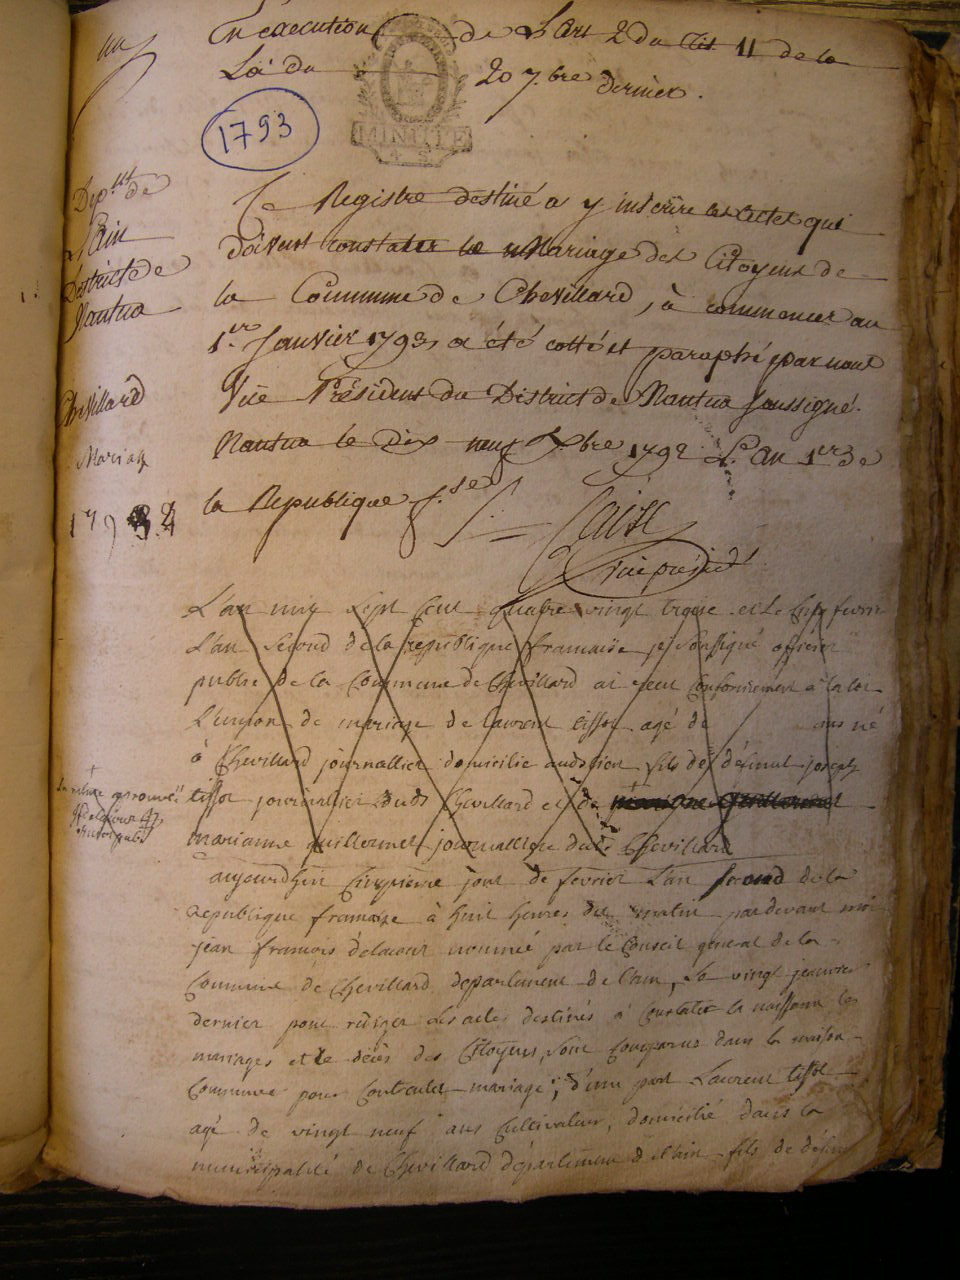 un
En execution de L'art 2 du tit 11 de la
Loi du 20 7.bre dernier.
MINUTE
1793
Dep.mt de
L'ain
District de
Nantua
Chevillard
Mariag
Ce Registre destiné a y inscrire les actes qui
doivent constater le Mariage des Citoyens de
la Commune de Chevillard, à commencer au
1.er Janvier 1793, a été cotté et paraphé par nous
Vice Président du District de Nantua soussigné.
Nantua le Dix neuf X.bre 1792 L'an 1.er de
la Republique f.se
vice présidt
L'an mil sept cent quatre vingt treize et le cinq fevrier
L'an second de la republique francaise je soussigné officier
public de la Commune de Chevillard ai recu conformement à la loi
L'union de mariage de laurent tissot agé de ans né
à Chevillard journallier domicilié audit lieu fils de défunt joseph
tissot journallier dudt Chevillard et de
marianne guillermet journalliere dudt Chevillard
aujourdhui cinquieme jour de fevrier L'an second de la
republique francaise à huit heures du matin pardevant moi
jean francois delacour nommé par le Conseil general de la
Commune de Chevillard departement de l'ain, le vingt janvier
dernier pour rédiger les actes destinés à Constater la naissance les
mariages et le décès des Citoyens, sont comparus dans la maison
Commune pour contracter mariage; d'une part Laurent tissot
agé de vingt neuf ans Cultivateur, domicilié dans la
municipalité de Chevillard département de l'ain fils de défunt